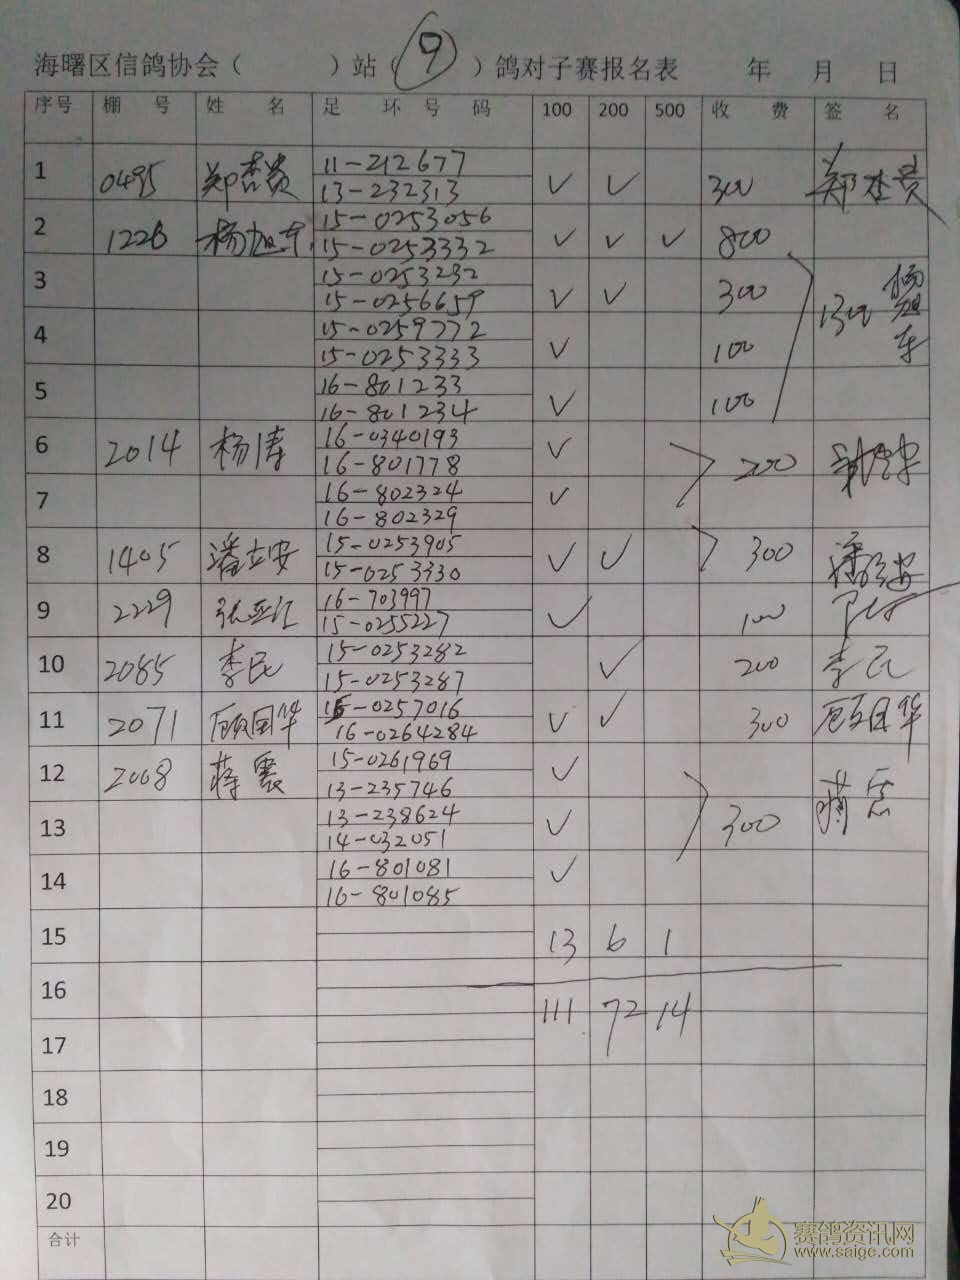 海曙区信鸽协会（ ）站（9）鸽对子赛报名表 年 月 日
序号 棚 号 姓 名 足 环 号 码 100 200 500 收 费 签 名
1 0495 11-212677
13-232313 ✓ ✓ 300
2 1226 杨旭车 15-0253056
15-0253332 ✓ ✓ ✓ 800
3 15-0253232
15-0256659 ✓ ✓ 300 1300 杨旭车
4 15-0259772
15-0253333 ✓ 100
5 16-801233
16-801234 ✓ 100
6 2014 杨涛 16-0340193 ✓
16-801778 200
7 16-802324 ✓
16-802329
8 1405 潘立安 15-0253905
15-0253930 ✓ ✓ 300 潘立安
9 2229 16-703997
15-0255227 ✓ 100
10 2085 李民 15-0253282
15-0253287 ✓ 200 李民
11 2071 顾国华 15-0257016
16-0264284 ✓ ✓ 300 顾国华
12 2008 蒋震 15-0261969
13-235746 ✓
13 13-238624
14-032051 ✓ 300 蒋震
14 16-801081
16-801085 ✓
15 13 6 1
16 111 72 14
17
18
19
20
合计
赛鸽资讯网
www.saige.com